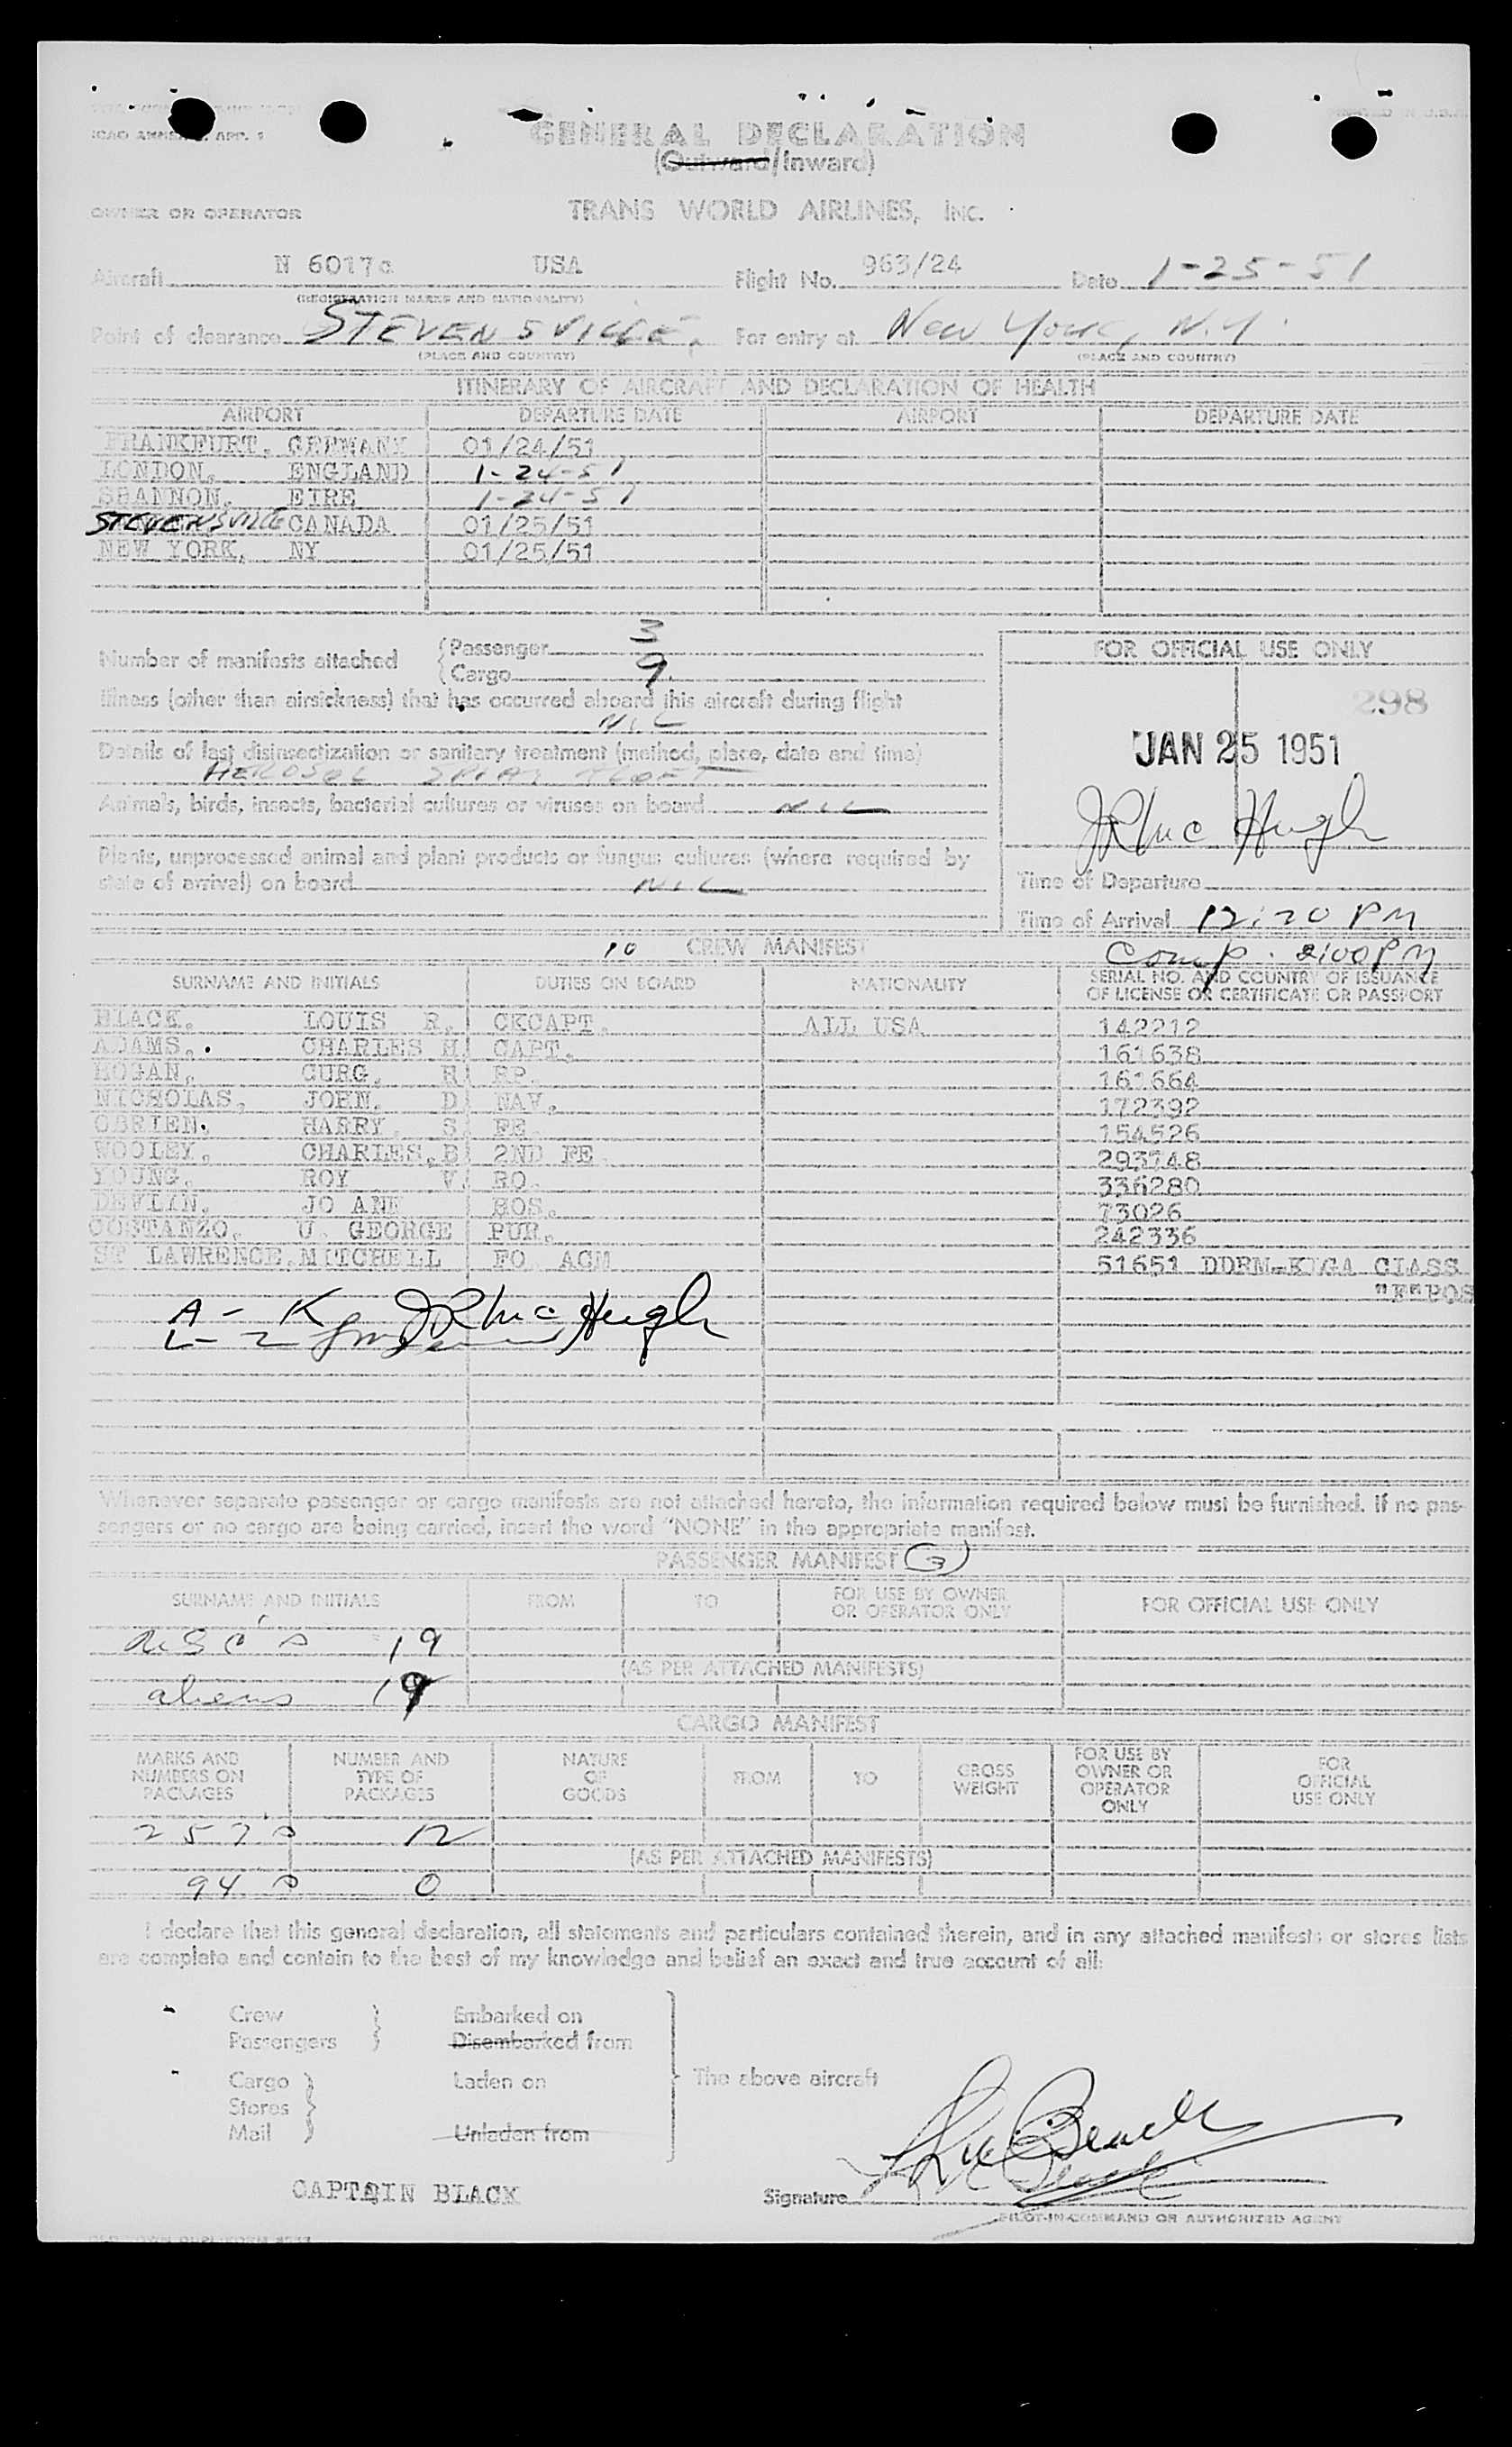 ICAO ANNEX 9, APP. 1
GENERAL DECLARATION
(Outward/Inward)
OWNER OR OPERATOR TRANS WORLD AIRLINES, Inc.
Aircraft N 6017c USA Flight No. 963/24 Date 1-25-51
(REGISTRATION MARKS AND NATIONALITY)
Point of clearance STEVENSVILLE, For entry at New York, N.Y.
(PLACE AND COUNTRY) (PLACE AND COUNTRY)
ITINERARY OF AIRCRAFT AND DECLARATION OF HEALTH
AIRPORT DEPARTURE DATE AIRPORT DEPARTURE DATE
FRANKFURT, GERMANY 01/24/51
LONDON, ENGLAND 1-24-51
SHANNON, EIRE 1-24-51
STEVENSVILLE CANADA 01/25/51
NEW YORK, NY 01/25/51
Number of manifests attached
Passenger 3
Cargo 9
FOR OFFICIAL USE ONLY
Illness (other than airsickness) that has occurred aboard this aircraft during flight
NIL
298
Details of last disinsectization or sanitary treatment (method, place, date and time)
AEROSOL SPRAY
JAN 25 1951
Animals, birds, insects, bacterial cultures or viruses on board NIL
JR McHugh
Plants, unprocessed animal and plant products or fungus cultures (where required by
state of arrival) on board NIL
Time of Departure
Time of Arrival 12:20 PM
10 CREW MANIFEST Comp. 2:00PM
SURNAME AND INITIALS DUTIES ON BOARD NATIONALITY SERIAL NO. AND COUNTRY OF ISSUANCE
OF LICENSE OR CERTIFICATE OR PASSPORT
BLACK, LOUIS R. CKCAPT. ALL USA 142212
ADAMS, CHARLES H. CAPT. 161638
HOGAN, CURG, R RP. 161664
NICHOLAS, JOHN, D NAV. 172392
OBRIEN, HARRY S. FE. 154526
WOOLEY, CHARLES,B 2ND FE. 293748
YOUNG, ROY V. RO. 336280
DEVLIN, JO ANN HOS. 73026
COSTANZO, U. GEORGE PUR. 242336
ST LAWRENCE,MITCHELL FO ACM 51651 DDRM-KTGA CLASS
"F"POS
A - K JR McHugh
L - 2
Whenever separate passenger or cargo manifests are not attached hereto, the information required below must be furnished. If no pas-
sengers or no cargo are being carried, insert the word "NONE" in the appropriate manifest.
PASSENGER MANIFEST (3)
SURNAME AND INITIALS FROM TO FOR USE BY OWNER
OR OPERATOR ONLY FOR OFFICIAL USE ONLY
USC's 19
(AS PER ATTACHED MANIFESTS)
aliens 19
CARGO MANIFEST
MARKS AND
NUMBERS ON
PACKAGES
NUMBER AND
TYPE OF
PACKAGES
NATURE
OF
GOODS
FROM
TO
GROSS
WEIGHT
FOR USE BY
OWNER OR
OPERATOR
ONLY
FOR
OFFICIAL
USE ONLY
257s 12
(AS PER ATTACHED MANIFESTS)
94 s 0
I declare that this general declaration, all statements and particulars contained therein, and in any attached manifests or stores lists
are complete and contain to the best of my knowledge and belief an exact and true account of all:
Crew Embarked on
Passengers Disembarked from
Cargo Laden on The above aircraft
Stores
Mail Unladen from
CAPTAIN BLACK Signature
PILOT-IN-COMMAND OR AUTHORIZED AGENT